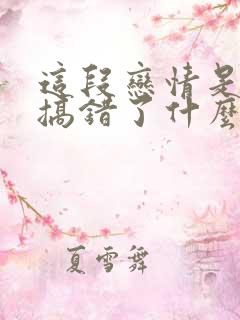 這段戀情是
搞錯了什麼
夏雪舞